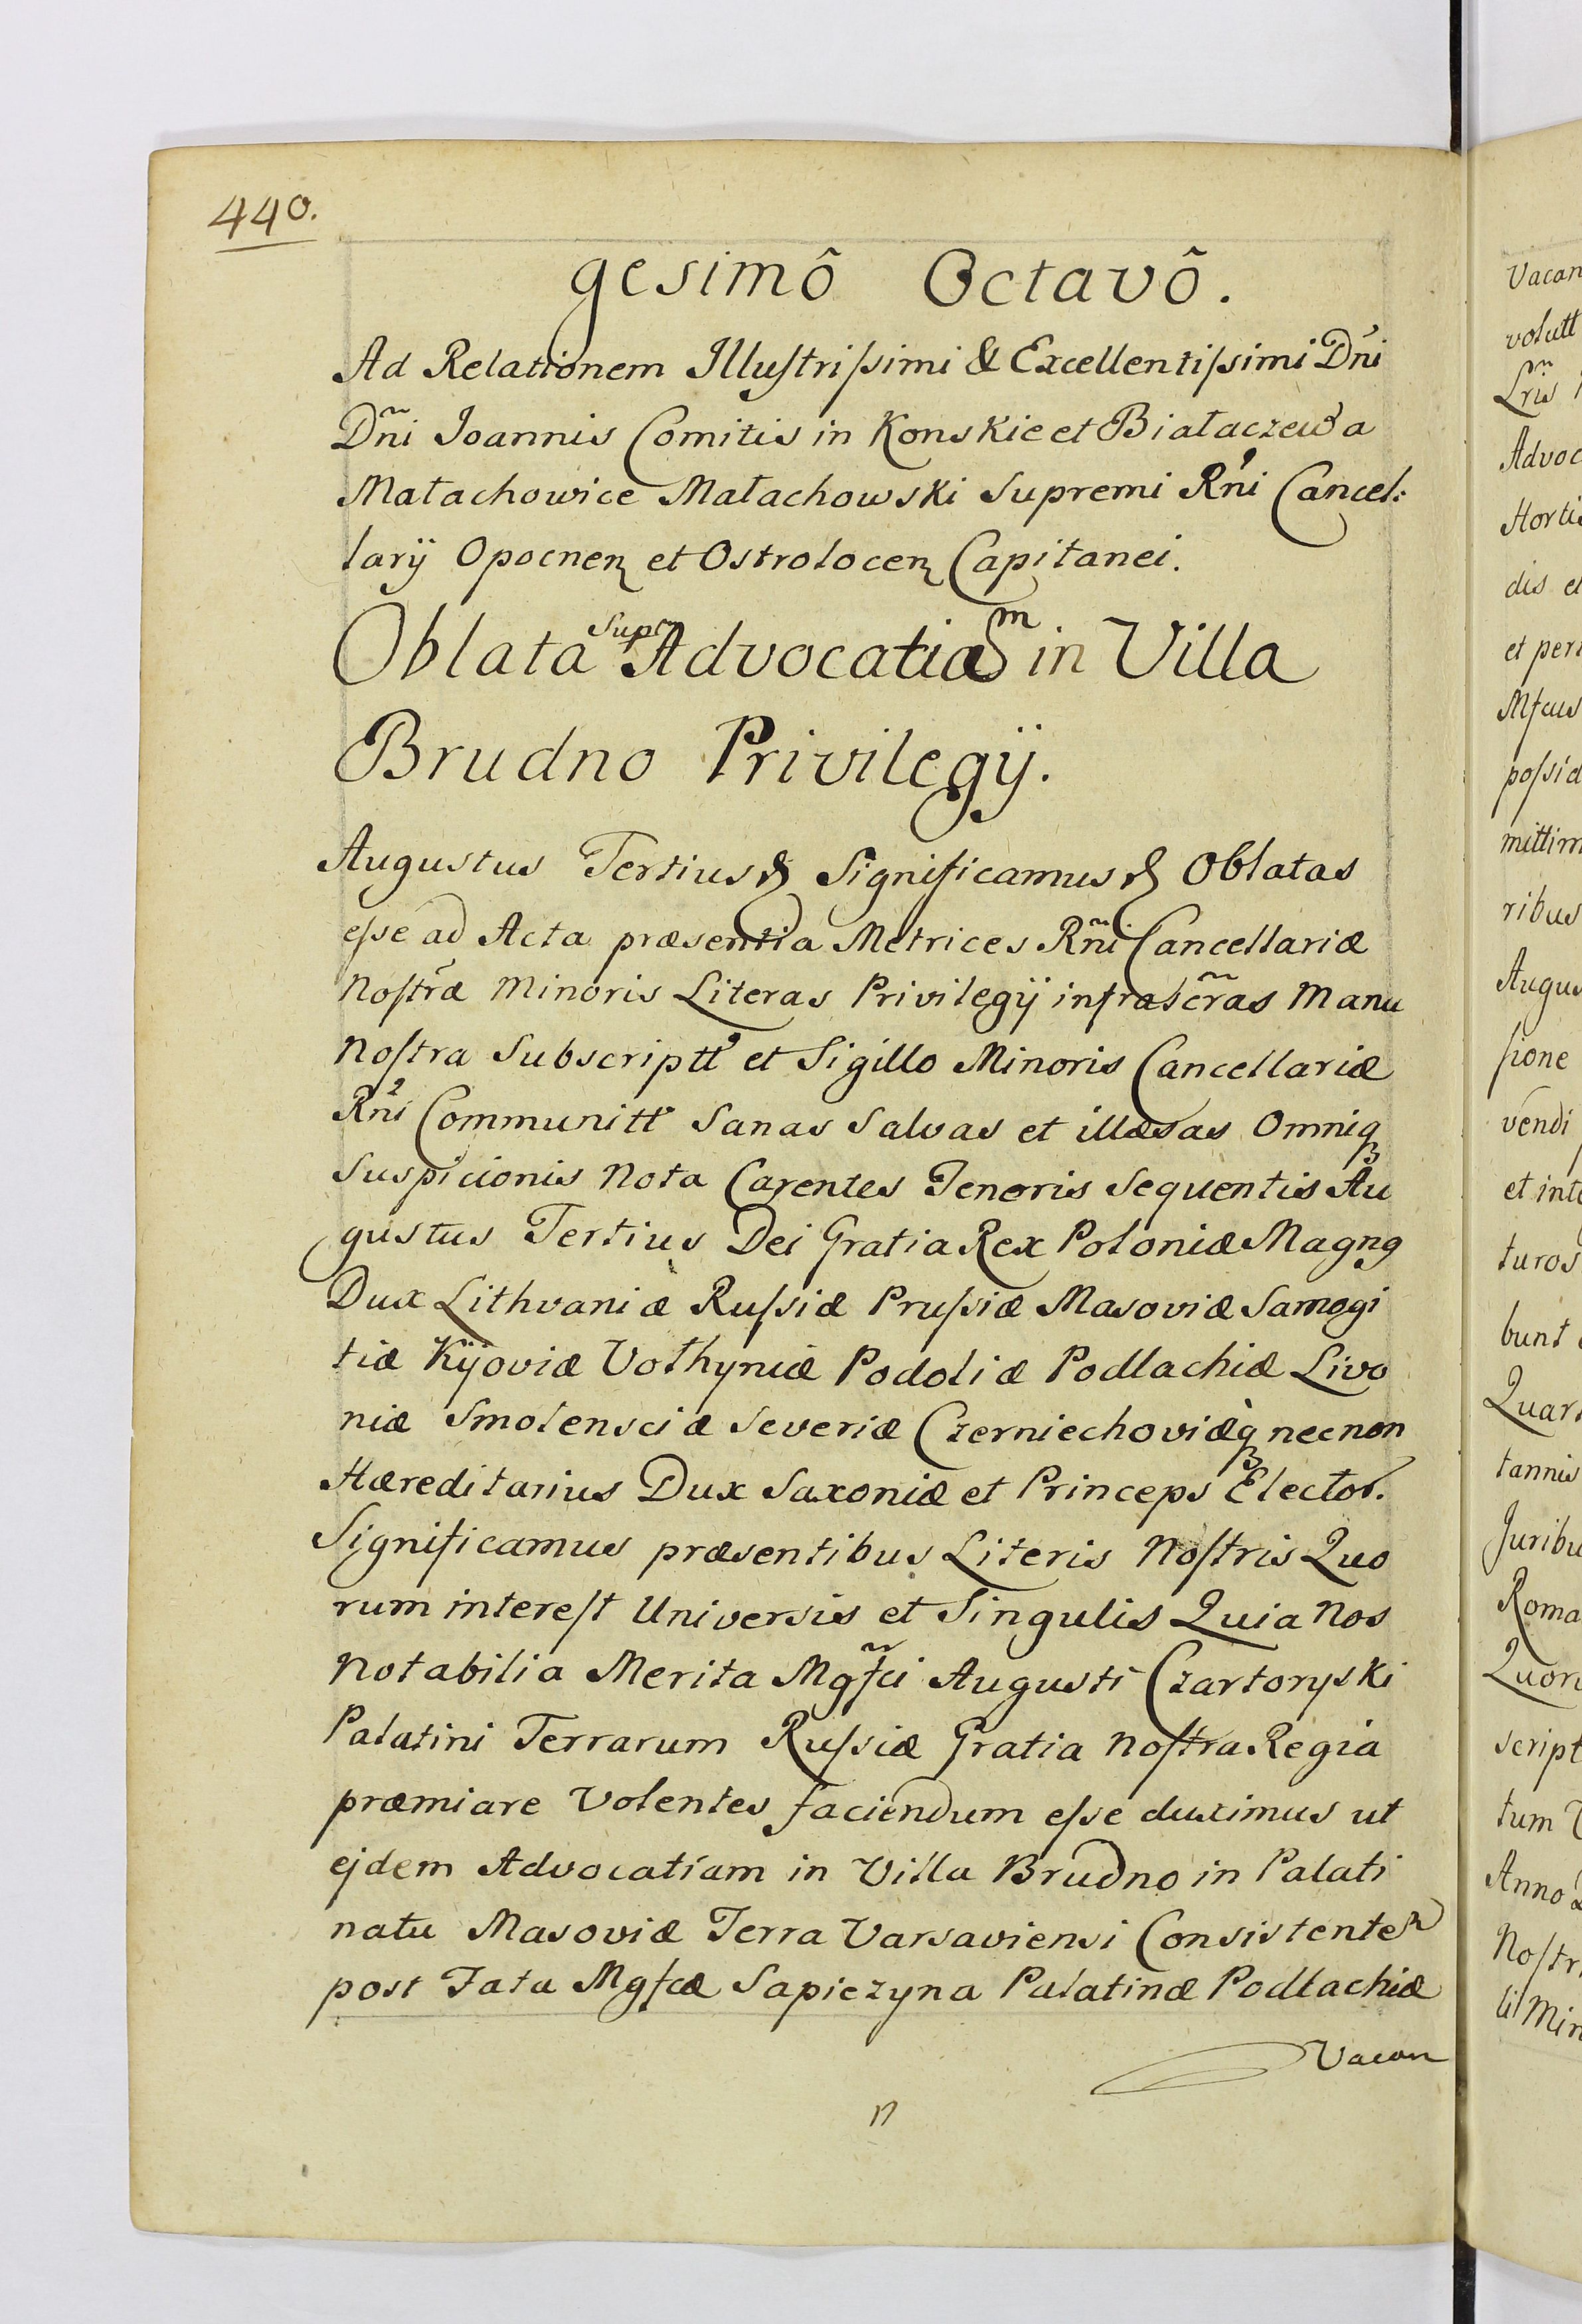 440.
gesimô Octavô.
Ad Relationem Illustrissimi & Excellentissimi Dñi
Dñi Joannis Comitis in Konskie et Białaczew a
Małachowice Małachowski Supremi Rñi Cancel:
larÿ Opocnen et Ostrołocen Capitanei.
Oblata Supr Advocatiam in Villa
Brudno Privilegÿ.
Augustus Tertius & Significamus & Oblatas
esse ad Acta præsentia Metrices Rñi Cancellariæ
Nostræ Minoris Literas Privilegÿ infrascr̃as Manu
Nostra Subscriptt et Sigillo Minoris Cancellariæ
Rñi Communitt Sanas Salvas et illæsas Omniq
Suspicionis Nota Carentes Tenoris Sequentis Au
gustus Tertius Dei Gratia Rex Poloniæ Magng
Dux Lithvaniæ Russiæ Prussiæ Masoviæ Samogi
tiæ Kÿoviæ Vołhyniæ Podoliæ Podlachiæ Livo
niæ Smolensciæ Severiæ Czerniechoviæq necnon
Hæreditarius Dux Saxoniæ et Princeps Elector.
Significamus præsentibus Literis Nostris Quo
rum interest Universis et Singulis Quia Nos
Notabilia Merita Mgfci Augusti Czartoryski
Palatini Terrarum Russiæ Gratia Nostra Regia
præmiare Volentes faciendum esse duximus ut
ejdem Advocatiam in Villa Brudno in Palati
natu Masoviæ Terra Varsaviensi Consistentem
post Fata Mgfcæ Sapiezyna Palatinæ Podlachiæ
Vacan
Vacan
volutt
Lris
Advoc
Horti
dis e
et per
Mfcus
possid
mittim
ribus
Augus
sione
vendi
et int
turos
bunt
Quar
tannis
Juribu
Roma
Quor
script
tum
Anno
Nostr
Min